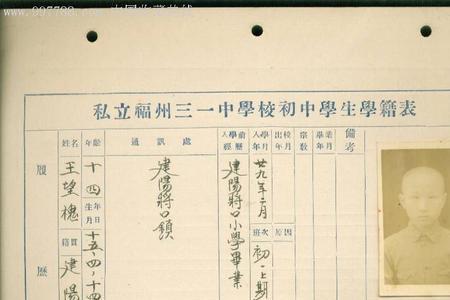 www.997788.com 中国收藏热线
私立福州三一中學校初中學生學籍表
履歷
姓名
王望
籍貫
建陽
年齡
十四
生年月日
十五、四、十四
通訊處
建陽將口鎮
入學前經歷
建陽將口小學畢業
入學年月
廿九年二月
班次
初一上期
出校年月
原因
宗教
畢業年月
備考